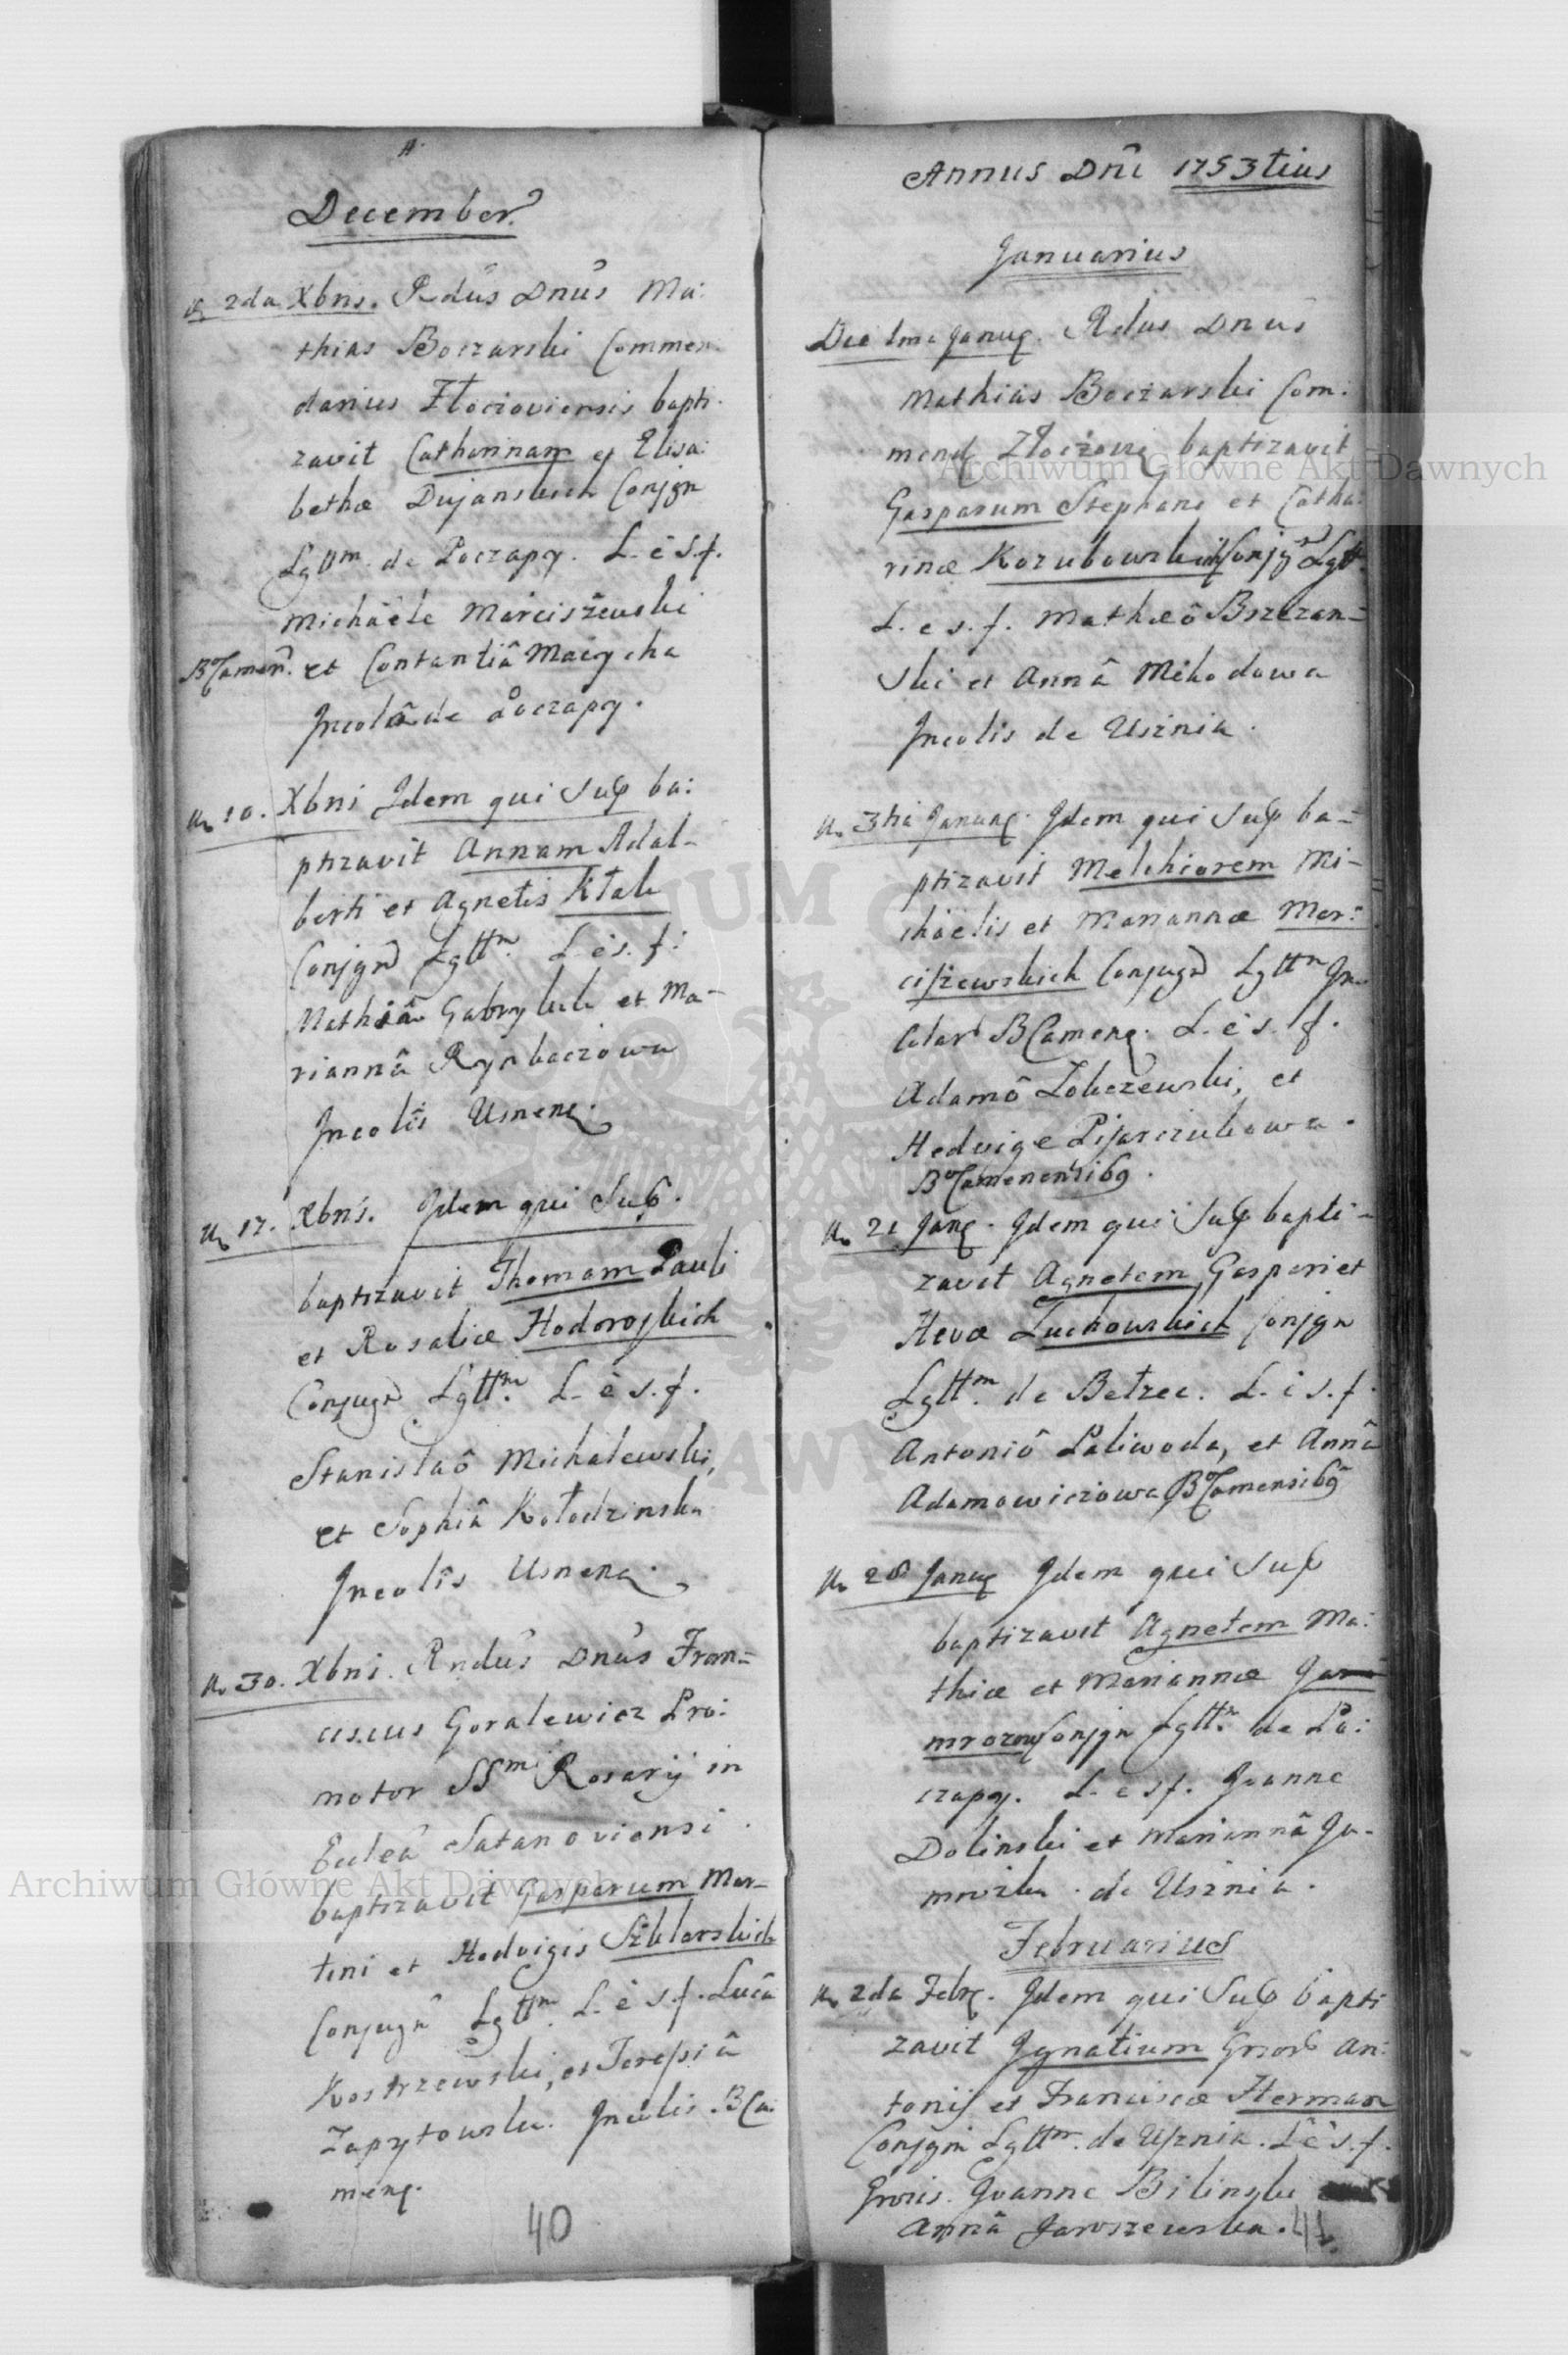 December
2da Xbris. Rdus Dnus Ma:
thias Boczarski Commen
darius Złocioviensis bapti
zavit Catharinam et Elisa:
bethæ Dujanskich Conjgn
Lgttm. de Poczapy. L. e s. f.
Michaële Marciszewski
BCamen. et Contantiâ Maicycha
Incolâ de Poczapy.
10. Xbris Idem qui Sup ba:
ptizavit Annam Adal-
berti et Agnetis Ktak
Conjgn Lgttm. L. e s. f:
Mathiâ Gabrylik et Ma-
riannâ Rynkaczowa
Incolis Usnen.
17. Xbris. Idem qui Sup.
baptizavit Thomam Pauli
et Rosaliæ Hodorowskich
Conjugn Lgttm. L. e s. f.
Stanislaô Michalewski,
et Sophiâ Kołodzinska
Incolis Usnen.
30. Xbris. Rndus Dnus Fran-
ciscus Goralewicz Pro:
motor SSmi Rosarij in
Ecclea Satanoviensi
baptizavit Gasparum Mar-
tini et Hedvigis Szklarskich
Conjugn Lgttm. L. e s. f. Lucâ
Kostrzewski, et Teressiâ
Zapytowska. Incolis. BCa:
men.
40
Annus Dnî 1753tius
Januarius
Die 1ma Janu. Rdus Dnus
Mathias Boczarski Com:
mend Złoczovi baptizavit
Gasparum Stephani et Catha:
rinæ Kozubowskich Conjgn Lgtt.
L. e s. f. Mathæô Brzezan-
ski et Annâ Mikodowa
Incolis de Usznia.
3tia Januar. Idem qui Sup ba-
ptizavit Melchiorem Mi-
chaëlis et Mariannæ Mar:
ciszewskich Conjugn Lgttm In
colar BCamen. L. e s. f.
Adamô Zokczewski, et
Hedvige Pisarczukowa.
BCamenensibq.
21 Jan. Idem qui Sup bapti-
zavit Agnetem Gaspari et
Hevæ Zuchowskich Conjgn
Lgttm. de Bełzec. L. e s. f.
Antoniô Paliwoda, et Annâ
Adamowiczowa BCamensibq
28 Janu Idem qui Sup
baptizavit Agnetem Ma:
thiæ et Mariannæ Ja
mrozow Conjgn Lgttm. de Po:
czapy. L. e s f. Joanne
Dolinski et Mariannâ Ja-
mrozka. de Usznia.
Februarius
2da Febr. Idem qui Sup bapti
zavit Ignatium Grsor An:
tonij et Franciscæ Herman
Conjgni Lgttm. de Usznia. L e s. f.
Joanne Bilinski
Annâ Jaroszewska. 41
Archiwum Główne Akt Dawnych
Archiwum Główne Akt Dawnych